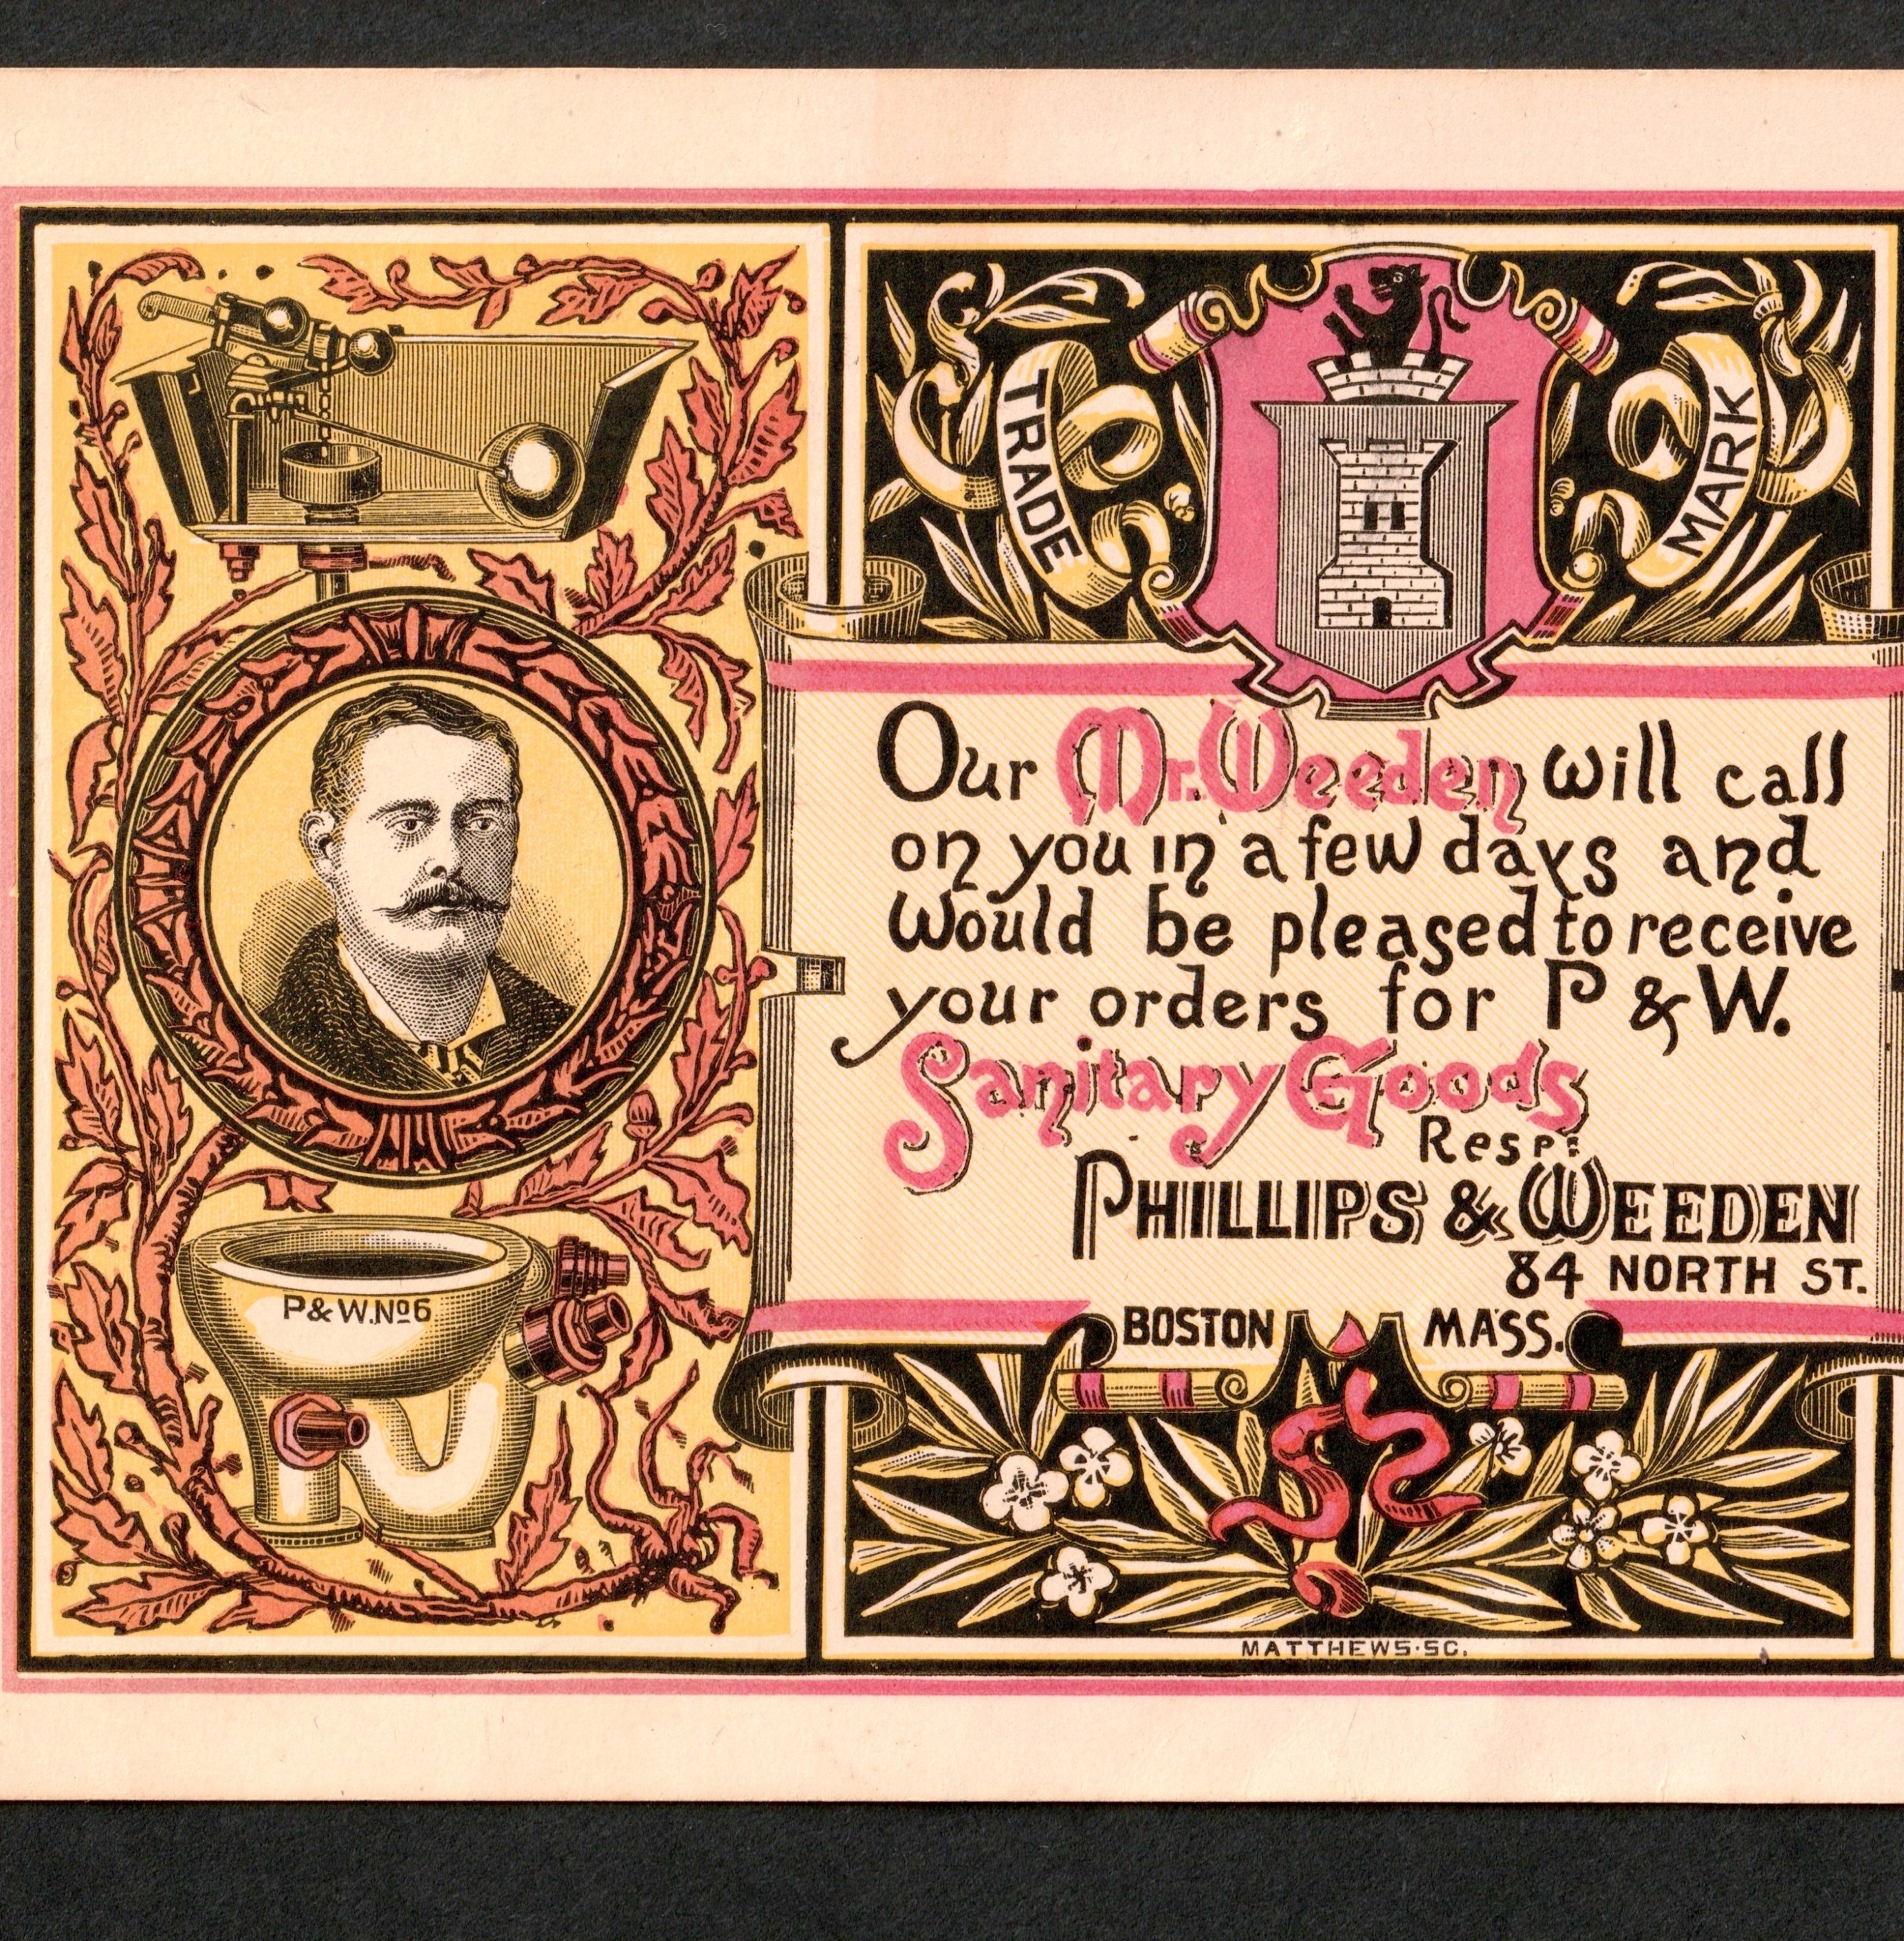 TRADE
MARK
Our Mr. Weeden will call
on you in a few days and
would be pleased to receive
your orders for P & W.
Sanitary Goods
Resp:
PHILLIPS & WEEDEN
84 NORTH ST.
BOSTON MASS.
P & W. No 6
MATTHEWS·SC.